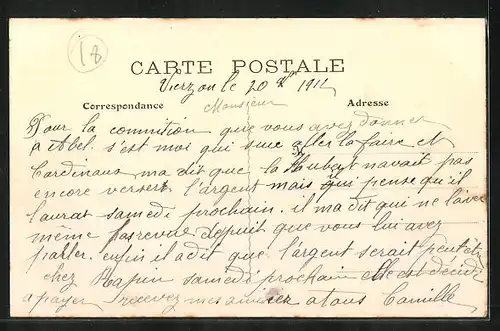 18
CARTE POSTALE
Vierzon le 20 1911
Correspondance Monsieur Adresse
Pour la commition que vous avez donner
a Abel. s'est moi qui suis aller la faire et
Cardinaux ma dit que la Hubert navait pas
encore verser l'argent mais qui pense qu'il
laurat samedi prochain. il ma dit qui ne l'avez
même pas revue depuit que vous lui avez
parler. enfin il a dit que l'argent serait peut etre
chez Hapin samedi prochain elle est décidé
a payer Recevez mes amitiés a tous Camille